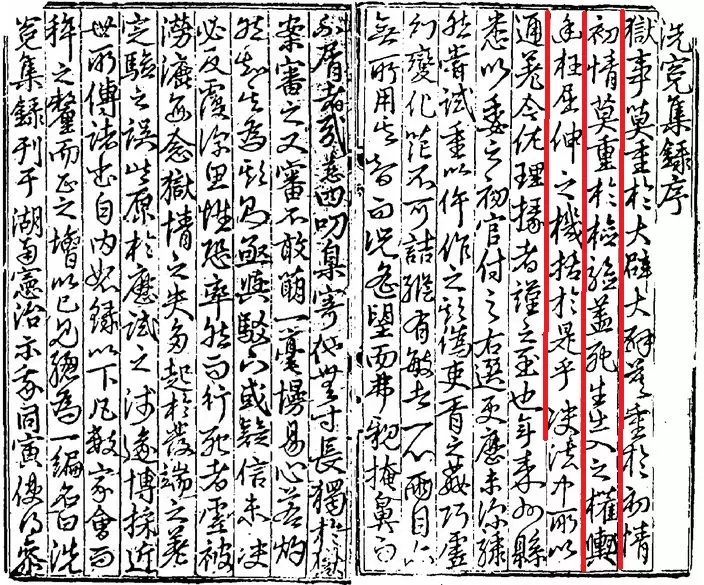 洗冤集錄序
獄事莫重於大辟大辟莫重於初情
初情莫重於檢驗蓋死生出入之權輿
幽枉屈伸之機括於是乎決法中所以
通差令佐理掾者謹之至也年來州縣
悉以委之初官付之右選更歷未深驟
然嘗試重以仵作之欺偽吏胥之姦巧虛
幻變化茫不可詰縱有敏者一心兩目亦
無所用其智而況遙望而弗親掩鼻而
不屑者哉慈四叨臬寄他無寸長獨於獄
案審之又審不敢萌一毫慢易心若灼
然知其為欺則亟與駁下或疑信未決
必反覆深思惟恐率然而行死者虛被
澇漉每念獄情之失多起於發端之差
定驗之誤皆原於歷試之淺遂博採近
世所傳諸書自內恕錄以下凡數家會而
粹之釐而正之增以己見總為一編名曰洗
冤集錄刊于湖南憲治示我同寅使得參